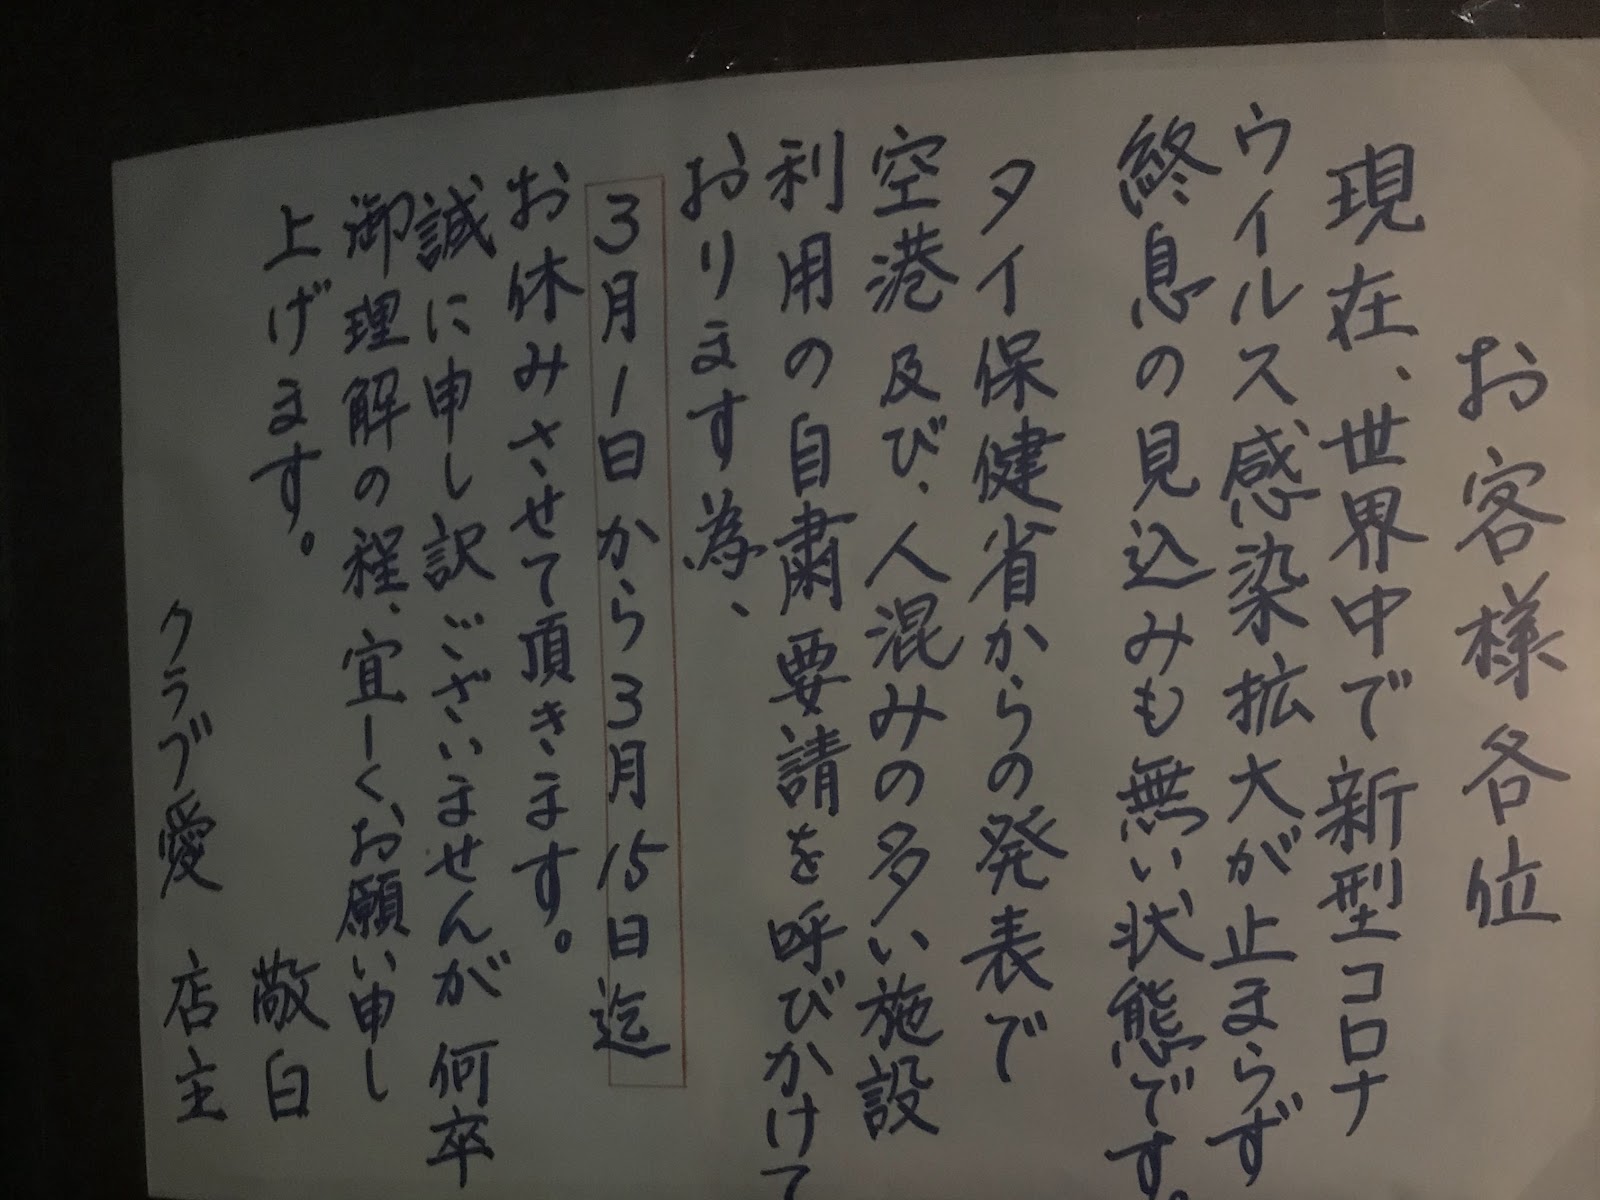 お客様各位
現在、世界中で新型コロナ
ウイルス感染拡大が止まらず
終息の見込みも無い状態です。
タイ保健省からの発表で
空港及び、人混みの多い施設
利用の自粛要請を呼びかけて
おります為、
3月1日から3月15日迄
お休みさせて頂きます。
誠に申し訳ございませんが何卒
御理解の程、宜しくお願い申し
上げます。
敬白
クラブ愛 店主